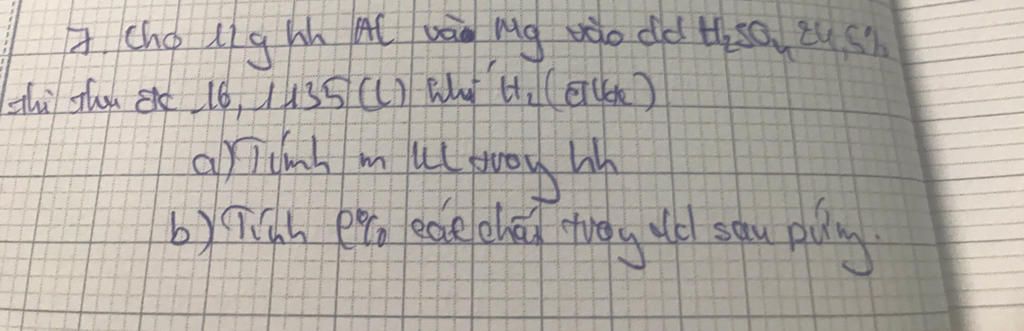 7. Cho 11g hh Al vào Mg vào dd H₂SO₄ 24,5%
thì thu đc 16,1135 (l) khí H₂ (đkc)
a) Tính m KL trong hh
b) Tính C% các chất trong dd sau pứng.